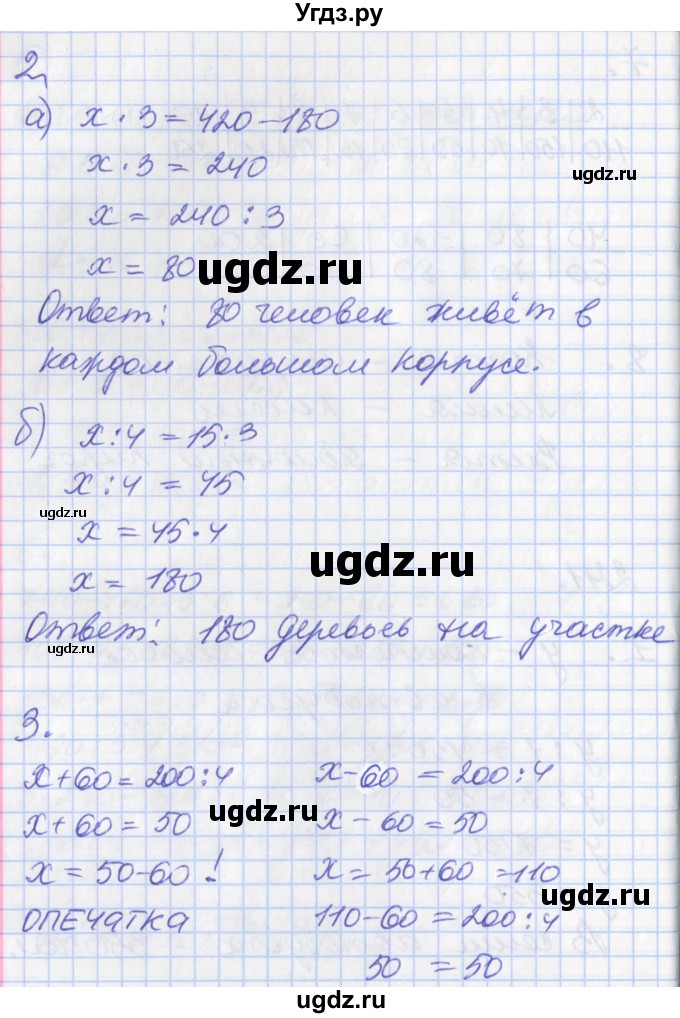 Угдз.ру
2
а) x · 3 = 420 – 180
x · 3 = 240
ugdz.ru
x = 240 : 3
x = 80
ugdz.ru
Ответ: 80 человек живёт в
каждом большом корпусе.
б) x : 4 = 15 · 3
x : 4 = 45
ugdz.ru
x = 45 · 4
ugdz.ru
x = 180
Ответ: 180 деревьев на участке
ugdz.ru
3.
x + 60 = 200 : 4 x – 60 = 200 : 4
ugdz.ru
x + 60 = 50 x – 60 = 50
x = 50 – 60 ! x = 50 + 60 = 110
ugdz.ru
ОПЕЧАТКА 110 – 60 = 200 : 4
50 = 50
ugdz.ru